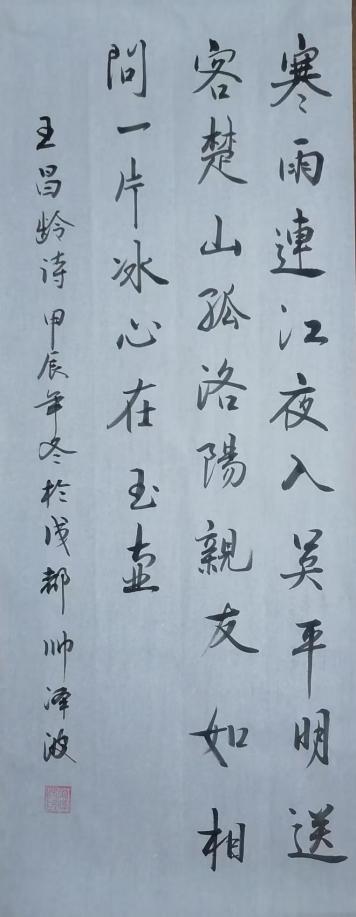 寒雨連江夜入吴平明送
客楚山孤洛陽親友如相
問一片冰心在玉壺
王昌龄诗 甲辰年冬於成都 帅泽波